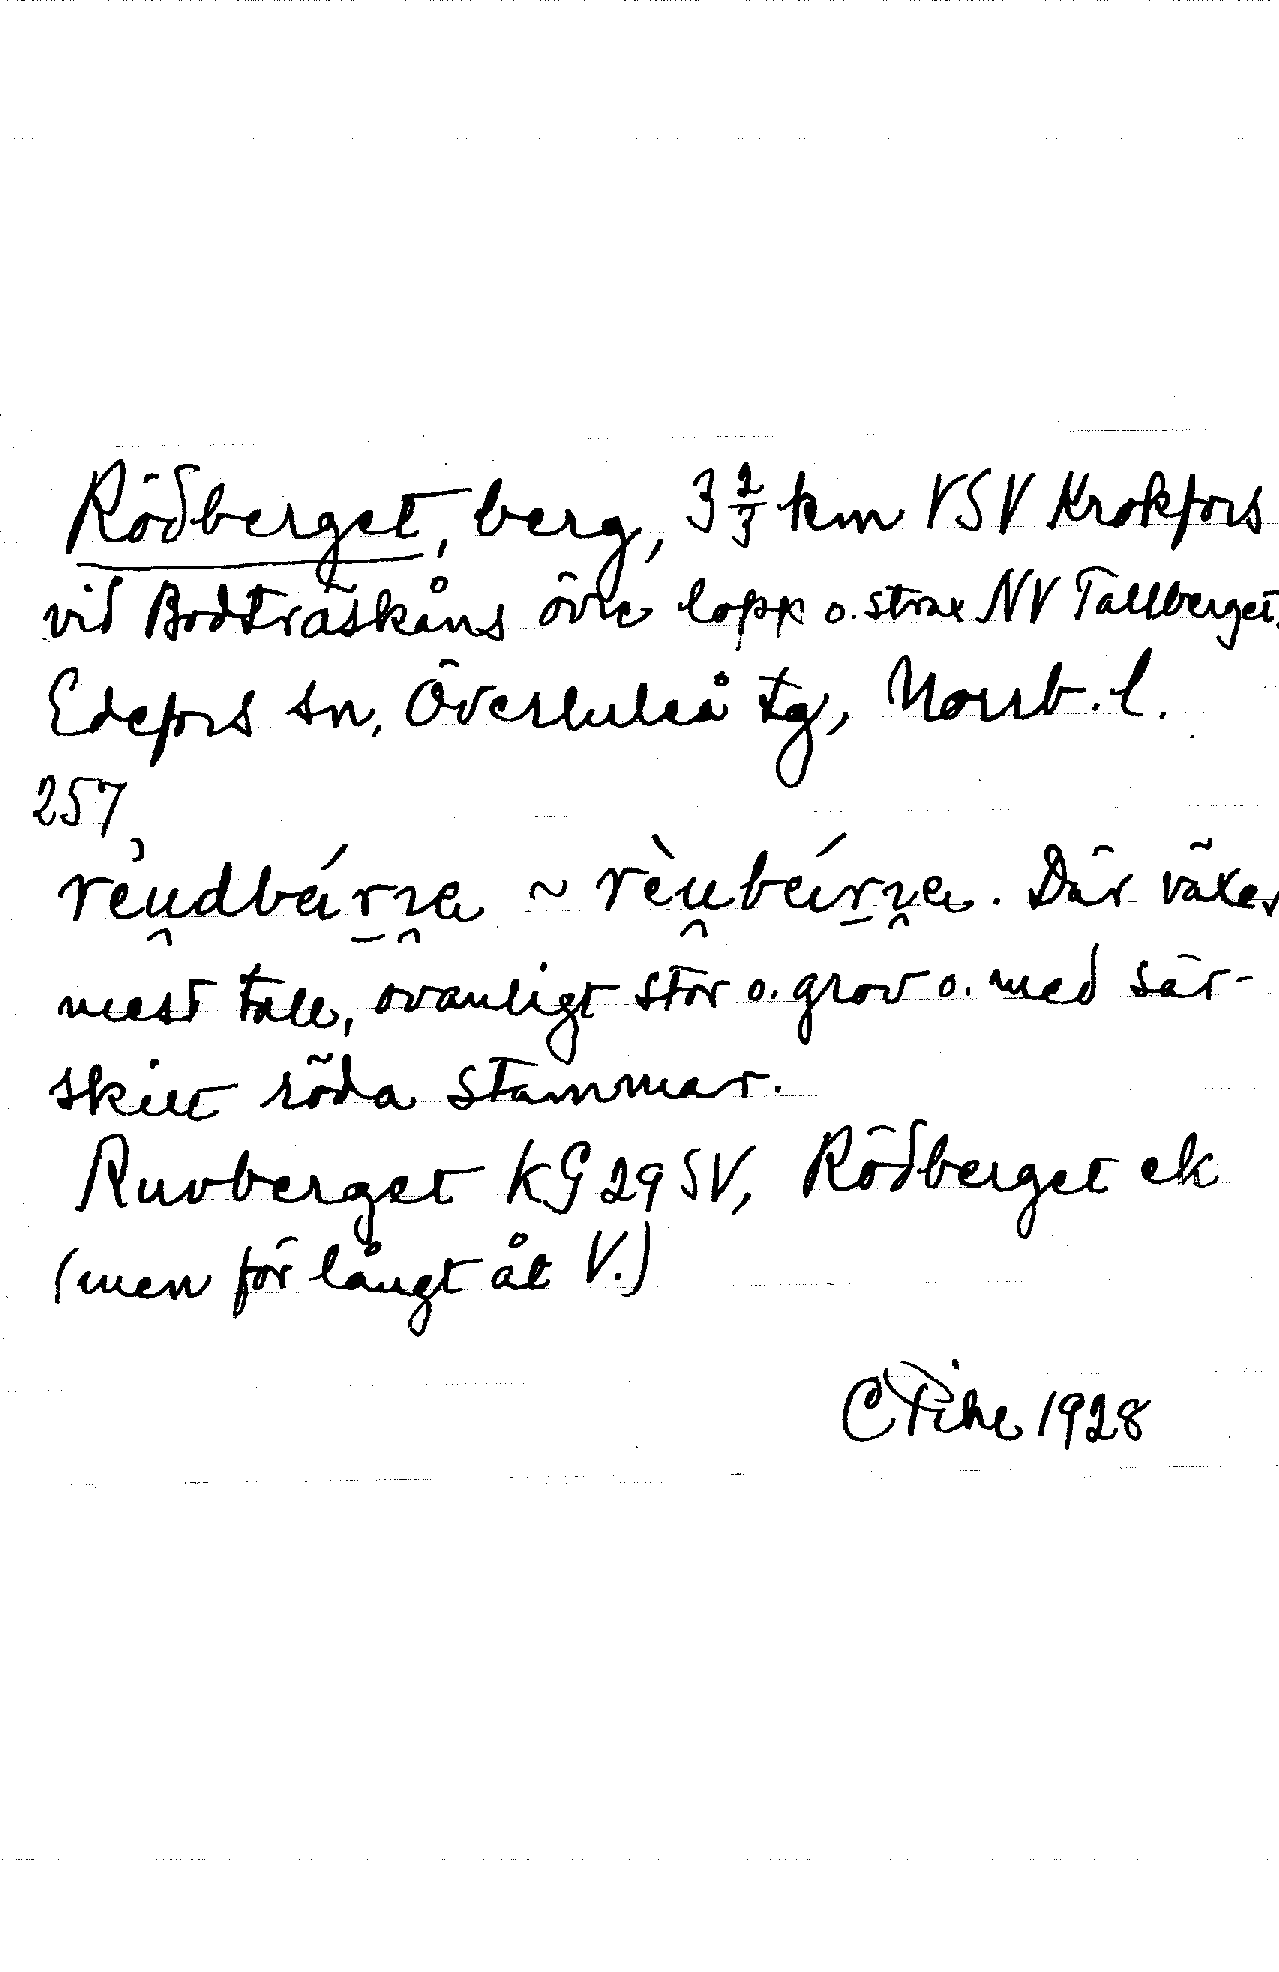 Rödberget, berg, 3 2/3 km VSV Krokfors
vid Bodträskåns övre lopp o. strax NV Tallberget.
Edefors sn, Överluleå tg, Norrb. l.
257
. Där växer
mest tall, ovanligt stor o. grov o. med sär-
skilt röda stammar.
Ruvberget KG 29 SV, Rödberget ek
(men för långt åt V.)
C Pihl 1928